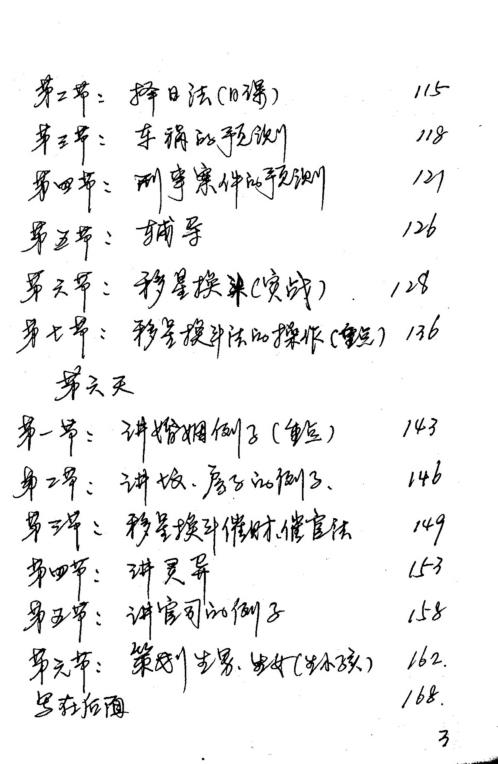 第二节：择日法(日课) 115
第三节：车祸的预测 118
第四节：刑事案件的预测 121
第五节：辅导 126
第六节：移星换斗(实战) 128
第七节：移星换斗法的操作(重点) 136
第六天
第一节：讲婚姻例子(重点) 143
第二节：讲坟、房子的例子、 146
第三节：移星换斗催财、催官法 149
第四节：讲灵异 153
第五节：讲官司的例子 158
第六节：策划生男、生女(生小孩) 162.
写在后面 168.
3